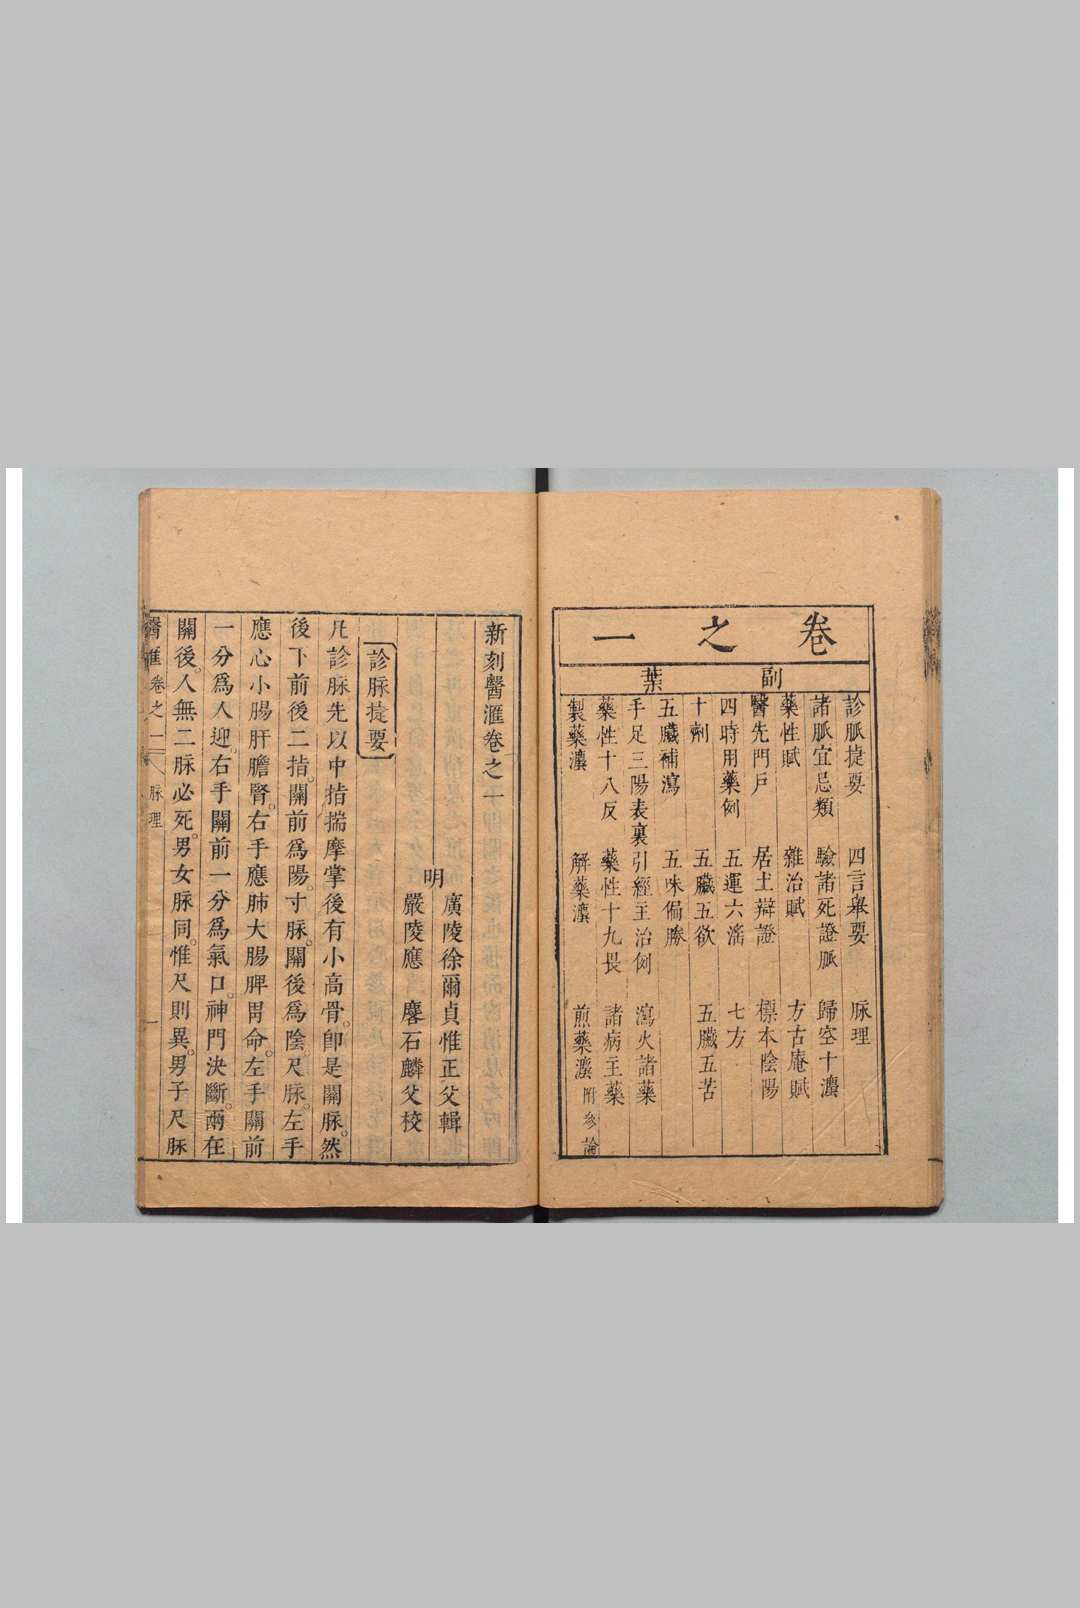 卷之一
副葉
診脈捷要　四言舉要　脉理
諸脈宜忌類　驗諸死證脈　歸空十灋
藥性賦　雜治賦　方古庵賦
醫先門戶　居士辯證　標本陰陽
四時用藥例　五運六淫　七方
十劑　五臟五欲　五臟五苦
五臟補瀉　五味偏勝
手足三陽表裏引經主治例　瀉火諸藥
藥性十八反　藥性十九畏　諸病主藥
製藥灋　解藥灋　煎藥灋附參論
新刻醫滙卷之一
明　廣陵徐爾貞惟正父輯
嚴陵應　麐石麟父校
診脉捷要
凡診脉先以中指揣摩掌後有小高骨。卽是關脉。然
後下前後二指。關前爲陽。寸脉。關後爲陰。尺脉。左手
應心小腸肝膽腎。右手應肺大腸脾胃命。左手關前
一分爲人迎。右手關前一分爲氣口。神門決斷。兩在
關後。人無二脉必死。男女脉同。惟尺則異。男子尺脉
醫滙卷之一　脉理　一